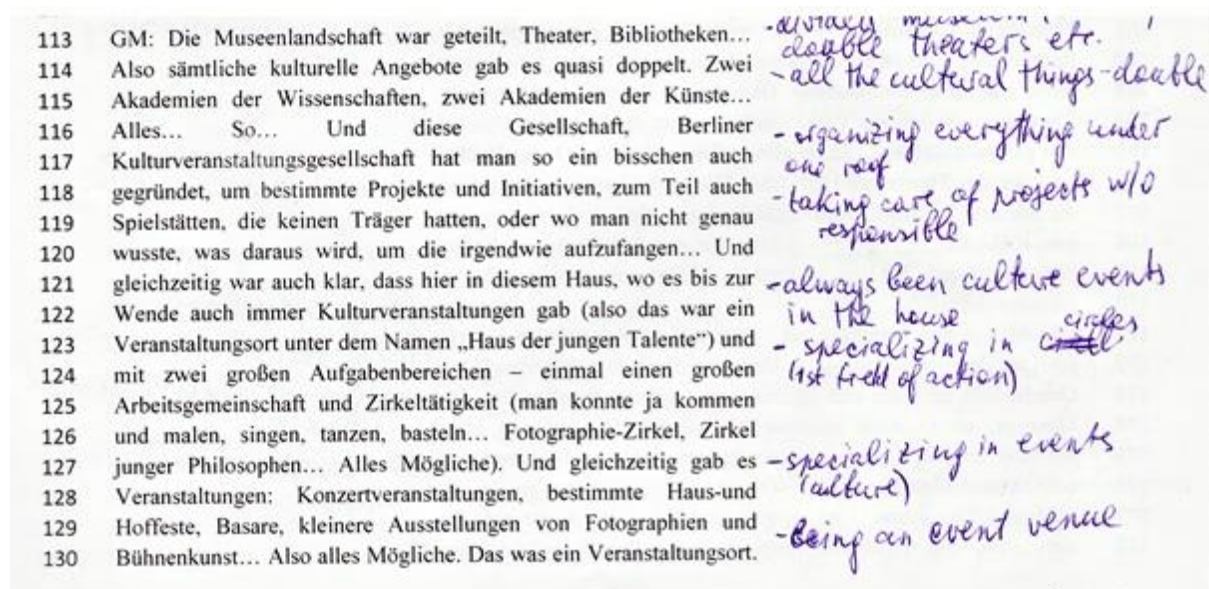 113 GM: Die Museenlandschaft war geteilt, Theater, Bibliotheken…
114 Also sämtliche kulturelle Angebote gab es quasi doppelt. Zwei
115 Akademien der Wissenschaften, zwei Akademien der Künste…
116 Alles… So… Und diese Gesellschaft, Berliner
117 Kulturveranstaltungsgesellschaft hat man so ein bisschen auch
118 gegründet, um bestimmte Projekte und Initiativen, zum Teil auch
119 Spielstätten, die keinen Träger hatten, oder wo man nicht genau
120 wusste, was daraus wird, um die irgendwie aufzufangen… Und
121 gleichzeitig war auch klar, dass hier in diesem Haus, wo es bis zur
122 Wende auch immer Kulturveranstaltungen gab (also das war ein
123 Veranstaltungsort unter dem Namen „Haus der jungen Talente“) und
124 mit zwei großen Aufgabenbereichen – einmal einen großen
125 Arbeitsgemeinschaft und Zirkeltätigkeit (man konnte ja kommen
126 und malen, singen, tanzen, basteln… Fotographie-Zirkel, Zirkel
127 junger Philosophen… Alles Mögliche). Und gleichzeitig gab es
128 Veranstaltungen: Konzertveranstaltungen, bestimmte Haus-und
129 Hoffeste, Basare, kleinere Ausstellungen von Fotographien und
130 Bühnenkunst… Also alles Mögliche. Das was ein Veranstaltungsort.
double theaters etc.
- all the cultural things - double
- organizing everything under
one roof
- taking care of projects w/o
responsible
- always been culture events
in the house
circles
- specializing in
(1st field of action)
- specializing in events
(culture)
- being an event venue